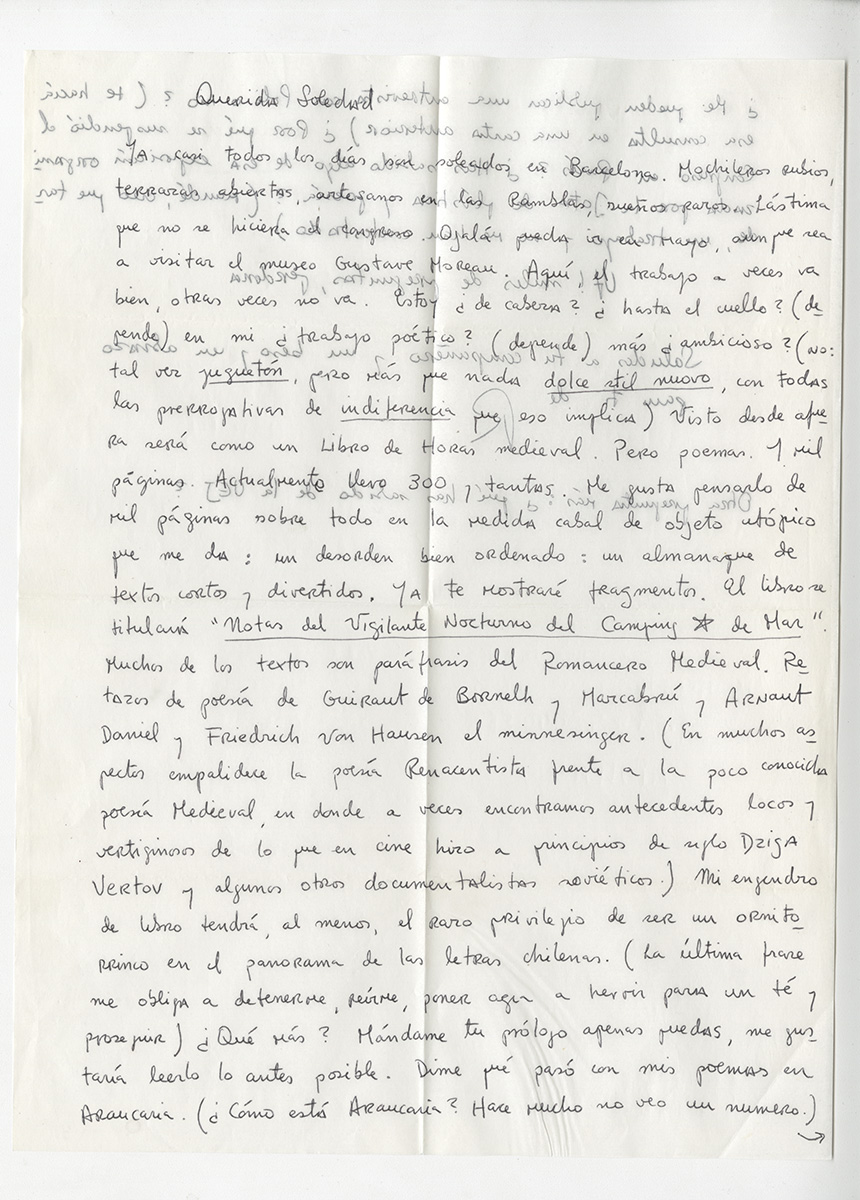 Querida Soledad
Ya casi todos los días son soleados en Barcelona. Mochileros rubios,
terrazas abiertas, artesanos en las Ramblas, sueños raros. Lástima
que no se hiciera el congreso. Ojalá pueda ir en Mayo, aunque sea
a visitar el museo Gustave Moreau. Aquí el trabajo a veces va
bien, otras veces no va. Estoy ¿de cabeza? ¿hasta el cuello? (de-
pende) en mi ¿trabajo poético? (depende) más ¿ambicioso? (no:
tal vez juguetón, pero más que nada dolce stil nuovo, con todas
las prerrogativas de indiferencia que eso implica) Visto desde afue-
ra será como un Libro de Horas medieval. Pero poemas. Y mil
páginas. Actualmente llevo 300 y tantas. Me gusta pensarlo de
mil páginas sobre todo en la medida cabal de objeto utópico
que me da: un desorden bien ordenado: un almanaque de
textos cortos y divertidos. Ya te mostraré fragmentos. El libro se
titulará "Notas del Vigilante Nocturno del Camping ☆ de Mar".
Muchos de los textos son paráfrasis del Romancero Medieval. Re-
tazos de poesía de Guiraut de Bornelh y Marcabrú y Arnaut
Daniel y Friedrich Von Hausen el minnesinger. (En muchos as-
pectos empalidece la poesía Renacentista frente a la poco conocida
poesía Medieval, en donde a veces encontramos antecedentes locos y
vertiginosos de lo que en cine hizo a principios de siglo Dziga
Vertov y algunos otros documentalistas soviéticos.) Mi engendro
de libro tendrá, al menos, el raro privilegio de ser un ornito-
rrinco en el panorama de las letras chilenas. (La última frase
me obliga a detenerme, reírme, poner agua a hervir para un té y
proseguir) ¿Qué más? Mándame tu prólogo apenas puedas, me gus-
taría leerlo lo antes posible. Dime qué pasó con mis poemas en
Araucaria. (¿Cómo está Araucaria? Hace mucho no veo un numero.)
→